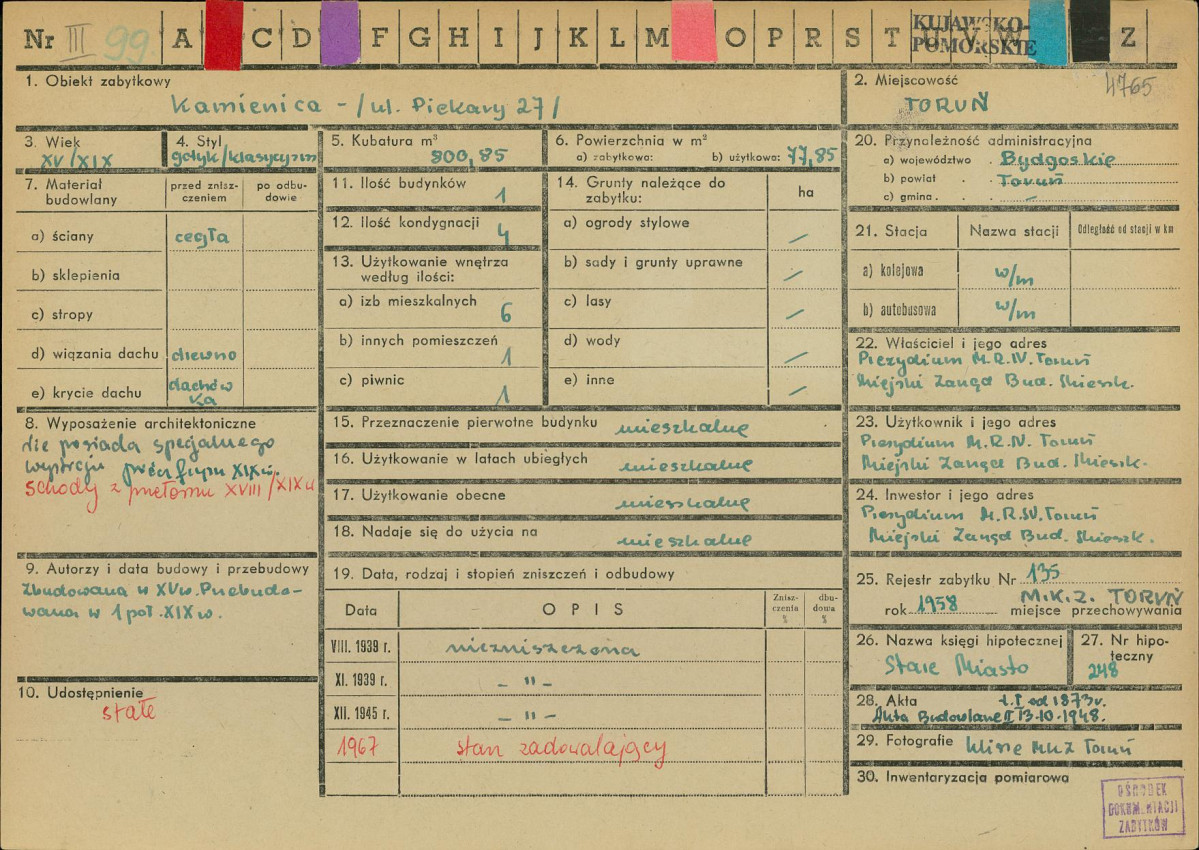 Nr III 99 A C D F G H I J K L M O P R S T U V W Z
KUJAWSKO-
POMORSKIE
1. Obiekt zabytkowy
Kamienica - /ul. Piekary 27/
2. Miejscowość 4765
TORUŃ
3. Wiek
XV/XIX
4. Styl
gotyk/klasycyzm
5. Kubatura m³
800,85
6. Powierzchnia w m²
a) zabytkowa: b) użytkowa: 77,85
20. Przynależność administracyjna
a) województwo Bydgoskie
b) powiat Toruń
c) gmina —
7. Materiał
budowlany
przed znisz-
czeniem
po odbu-
dowie
a) ściany cegła
b) sklepienia
c) stropy
d) wiązania dachu drewno
e) krycie dachu dachów
ka
11. Ilość budynków 1
12. Ilość kondygnacji 4
13. Użytkowanie wnętrza
według ilości:
a) izb mieszkalnych 6
b) innych pomieszczeń 1
c) piwnic 1
14. Grunty należące do
zabytku:
ha
a) ogrody stylowe —
b) sady i grunty uprawne —
c) lasy —
d) wody —
e) inne —
21. Stacja Nazwa stacji Odległość od stacji w km
a) kolejowa w/m
b) autobusowa w/m
22. Właściciel i jego adres
Prezydium M.R.N. Toruń
Miejski Zarząd Bud. Mieszk.
8. Wyposażenie architektoniczne
nie posiada specjalnego
wystroju prócz XIX w.
schody z przełomu XVIII/XIX w
15. Przeznaczenie pierwotne budynku mieszkalne
16. Użytkowanie w latach ubiegłych mieszkalne
17. Użytkowanie obecne mieszkalne
18. Nadaje się do użycia na mieszkalne
23. Użytkownik i jego adres
Prezydium M.R.N. Toruń
Miejski Zarząd Bud. Mieszk.
24. Inwestor i jego adres
Prezydium M.R.N. Toruń
Miejski Zarząd Bud. Mieszk.
9. Autorzy i data budowy i przebudowy
Zbudowana w XV w. Przebudo-
wana w 1 poł. XIX w.
10. Udostępnienie
stałe
19. Data, rodzaj i stopień zniszczeń i odbudowy
Data OPIS Znisz-
czenia
%
dbu-
dowa
%
VIII. 1939 r. niezniszczona
XI. 1939 r. - " -
XII. 1945 r. - " -
1967 stan zadowalający
25. Rejestr zabytku Nr 135
rok 1958 M.K.Z. TORUŃ
miejsce przechowywania
26. Nazwa księgi hipotecznej
Stare Miasto
27. Nr hipo-
teczny
248
28. Akta t. I od 1873 r.
Akta Budowlane II 13-10-1948.
29. Fotografie klisze MKZ Toruń
30. Inwentaryzacja pomiarowa
OŚRODEK
DOKUMENTACJI
ZABYTKÓW